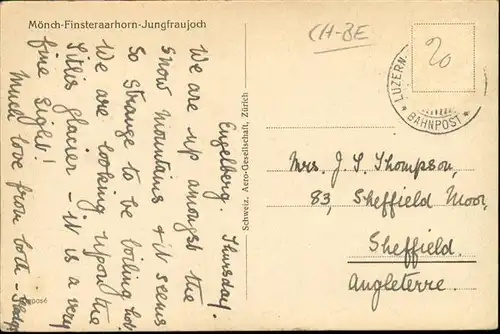 Mönch-Finsteraarhorn-Jungfraujoch
CH-BE
20
LUZERN.
* BAHNPOST *
Engelberg. Thursday.
We are up amongst the
snow mountains & it seems
so strange to be boiling hot.
We are looking upon the
Titlis glacier - it is a very
fine sight!
Much love from both -
Schweiz. Aero-Gesellschaft, Zürich
Mrs. J. S. Thompson,
83, Sheffield Moor,
Sheffield.
Angleterre.